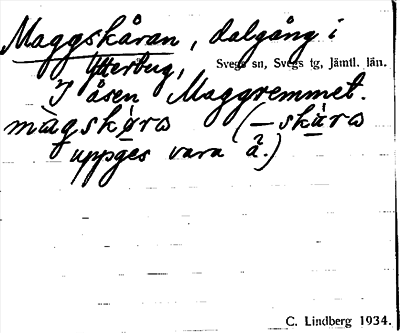 Maggskåran, dalgång i
Ytterberg, Svegs sn, Svegs tg, Jämtl. län.
I åsen Maggremmet.
uppges vara å.)
C. Lindberg 1934.